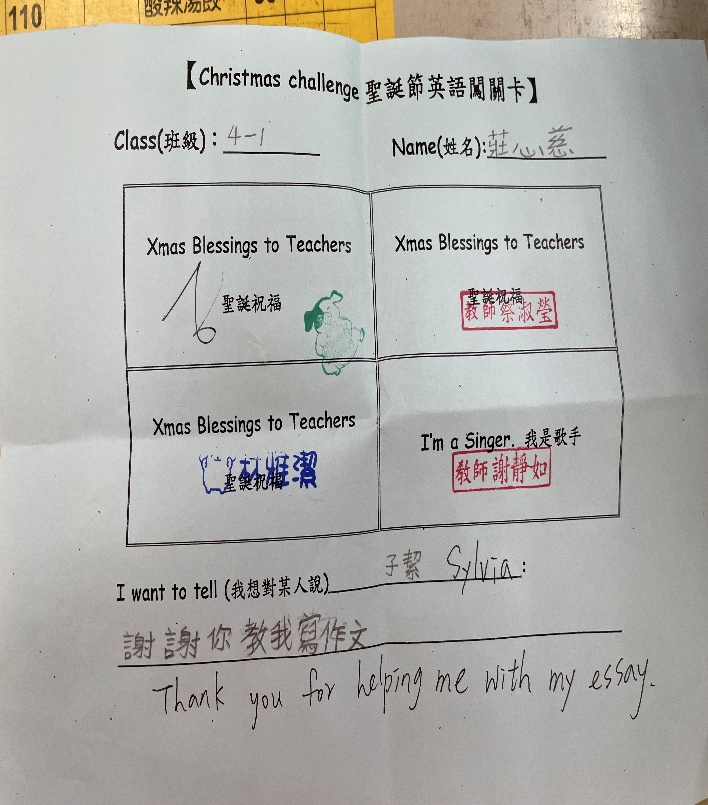 110
酸辣湯餃
【Christmas challenge 聖誕節英語闖關卡】
Class(班級)：4-1 Name(姓名):莊心慈
Xmas Blessings to Teachers
聖誕祝福
Xmas Blessings to Teachers
聖誕祝福
教師蔡淑瑩
Xmas Blessings to Teachers
聖誕祝福
林雅潔
I'm a Singer. 我是歌手
教師謝靜如
I want to tell (我想對某人說) 子絜 Sylvia :
謝謝你教我寫作文
Thank you for helping me with my essay.